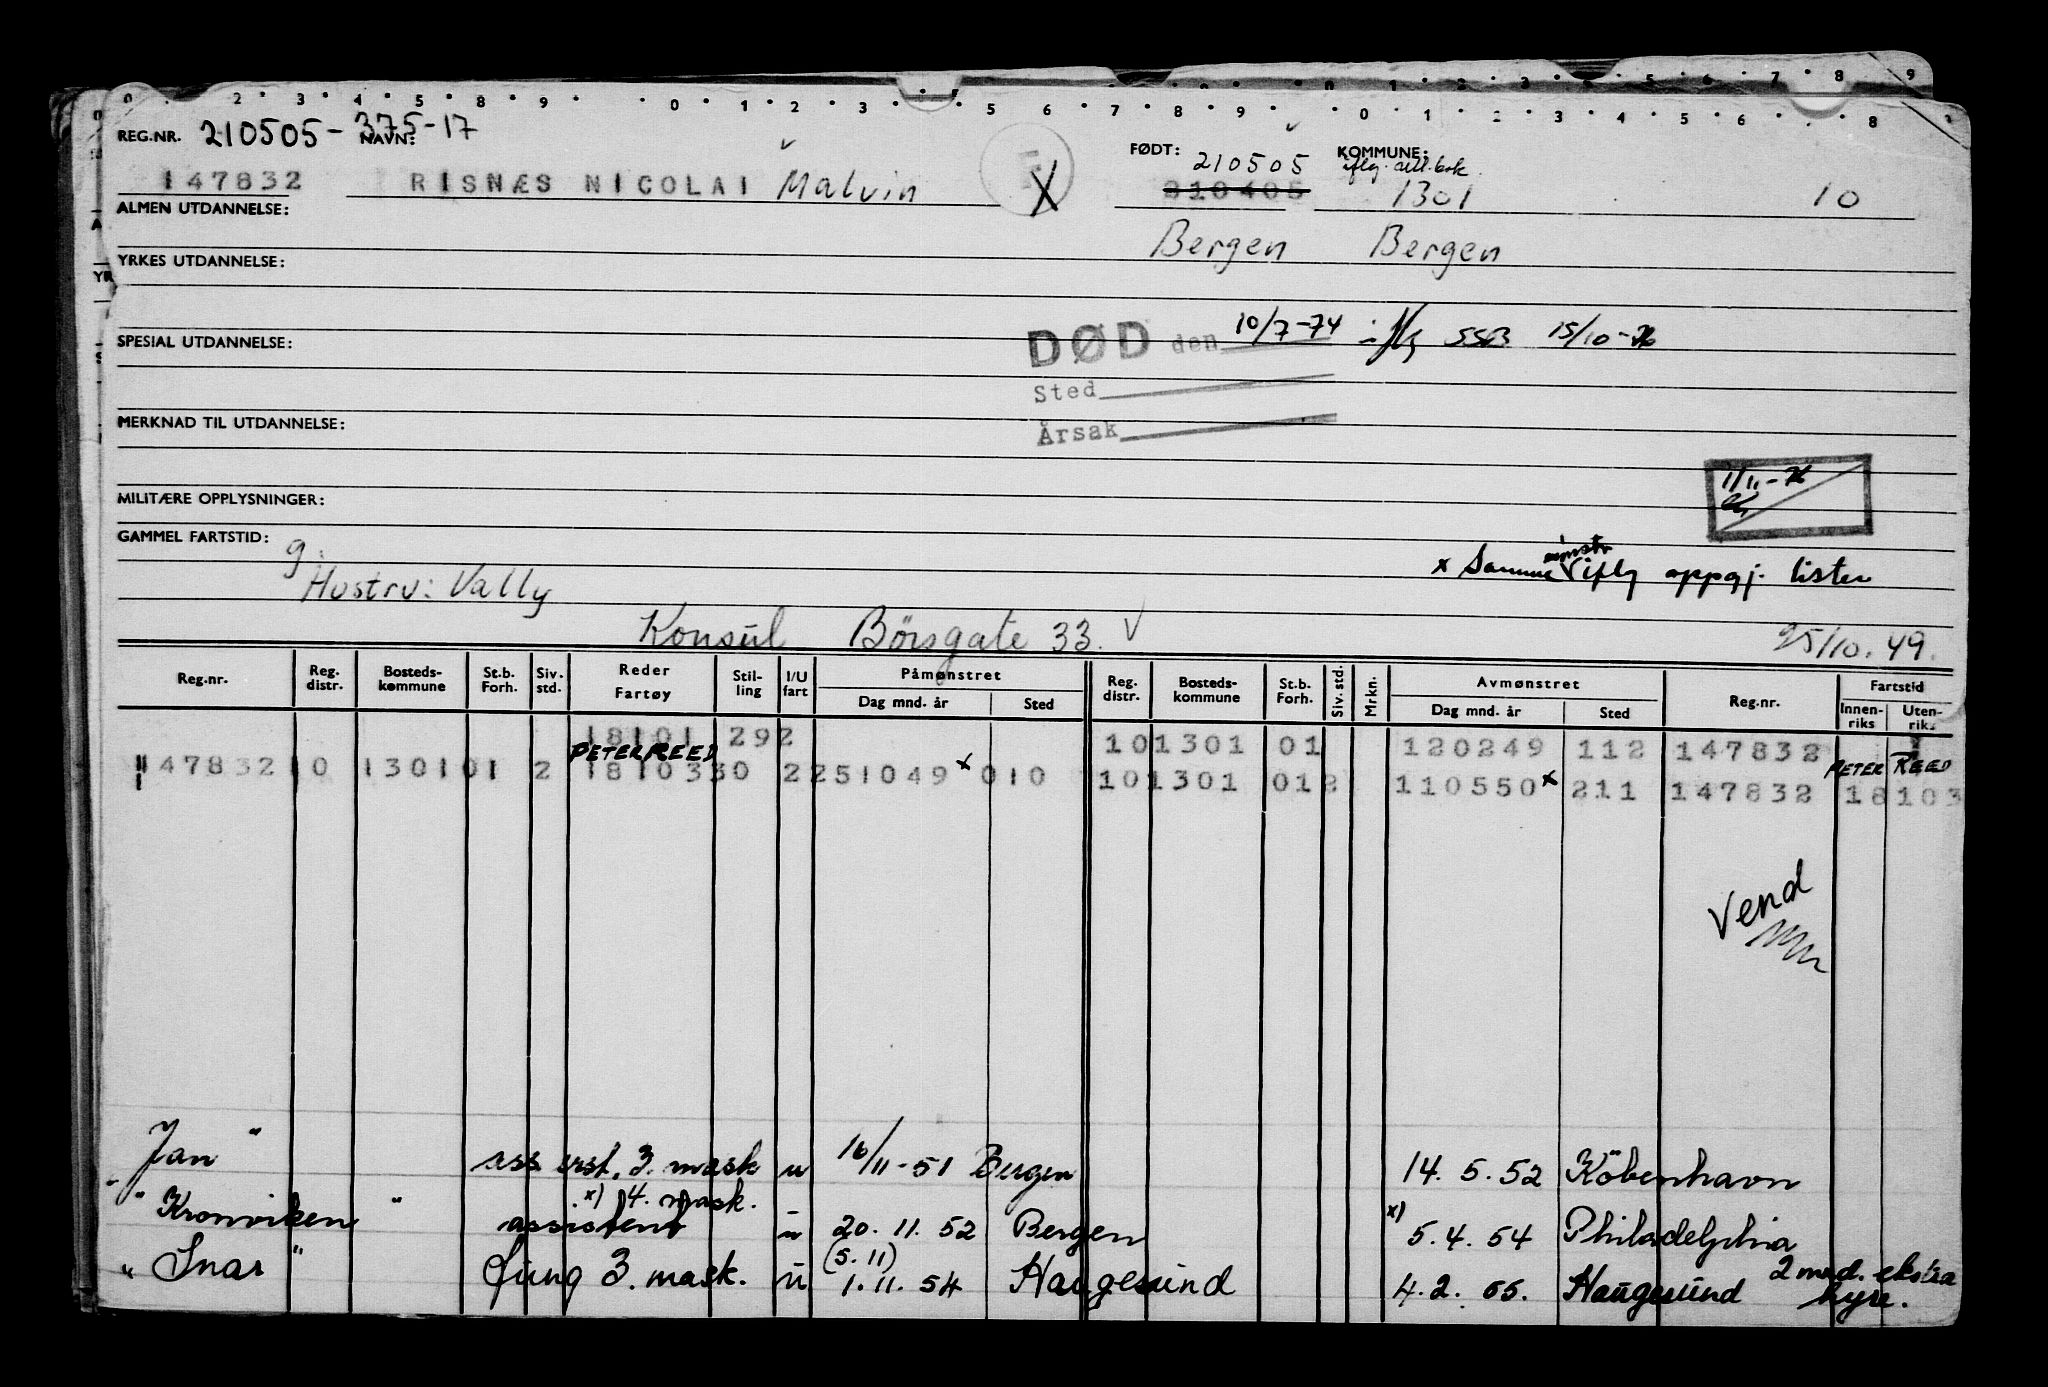 0 2 3 4 5 8 9 0 1 2 3 5 6 7 8 9 0 1 2 3 4 5 6 8
REG.NR. 210505-375-17 NAVN: FØDT: 210505 KOMMUNE: iflg. avll.bok
147832 RISNÆS NICOLAI Malvin X 310405 1301 10
ALMEN UTDANNELSE: Bergen Bergen
YRKES UTDANNELSE:
SPESIAL UTDANNELSE: DØD den 10/7-74 iflg SSB 15/10-76
Sted
Årsak
MERKNAD TIL UTDANNELSE:
MILITÆRE OPPLYSNINGER: 11/11-76
GAMMEL FARTSTID: g.
x Samme mønstr iflg oppgj. lister
Hustru: Vally
Konsul Börsgate 33. V 25/10.49.
Reg.nr. Reg. distr. Bosteds-kommune St.b. Forh. Siv. std. Reder Fartøy Stil-ling I/U fart Påmønstret Dag mnd. år Sted Reg. distr. Bosteds-kommune St.b. Forh. Siv. std. Mrkn. Avmønstret Dag mnd. år Sted Reg.nr. Fartstid Innen-riks Uten-riks
18101 292 101301 01 120249 112 147832
PETER REED PETER REED
147832 10 1301 01 2 18103 30 2 251049 x 010 101301 012 110550 x 211 147832 18103
Vend
Jan " ass erst. 3. mask u 16/11-51 Bergen 14. 5. 52 Köbenhavn
x) 4. mask.
" Kronviken " assistent u 20. 11. 52 Bergen x) 5. 4. 54 Philadelphia
(5. 11)
" Snar " fung 3. mask. u 1. 11. 54 Haugesund 4. 2. 55. Haugesund 2 mnd. ekstra hyre.